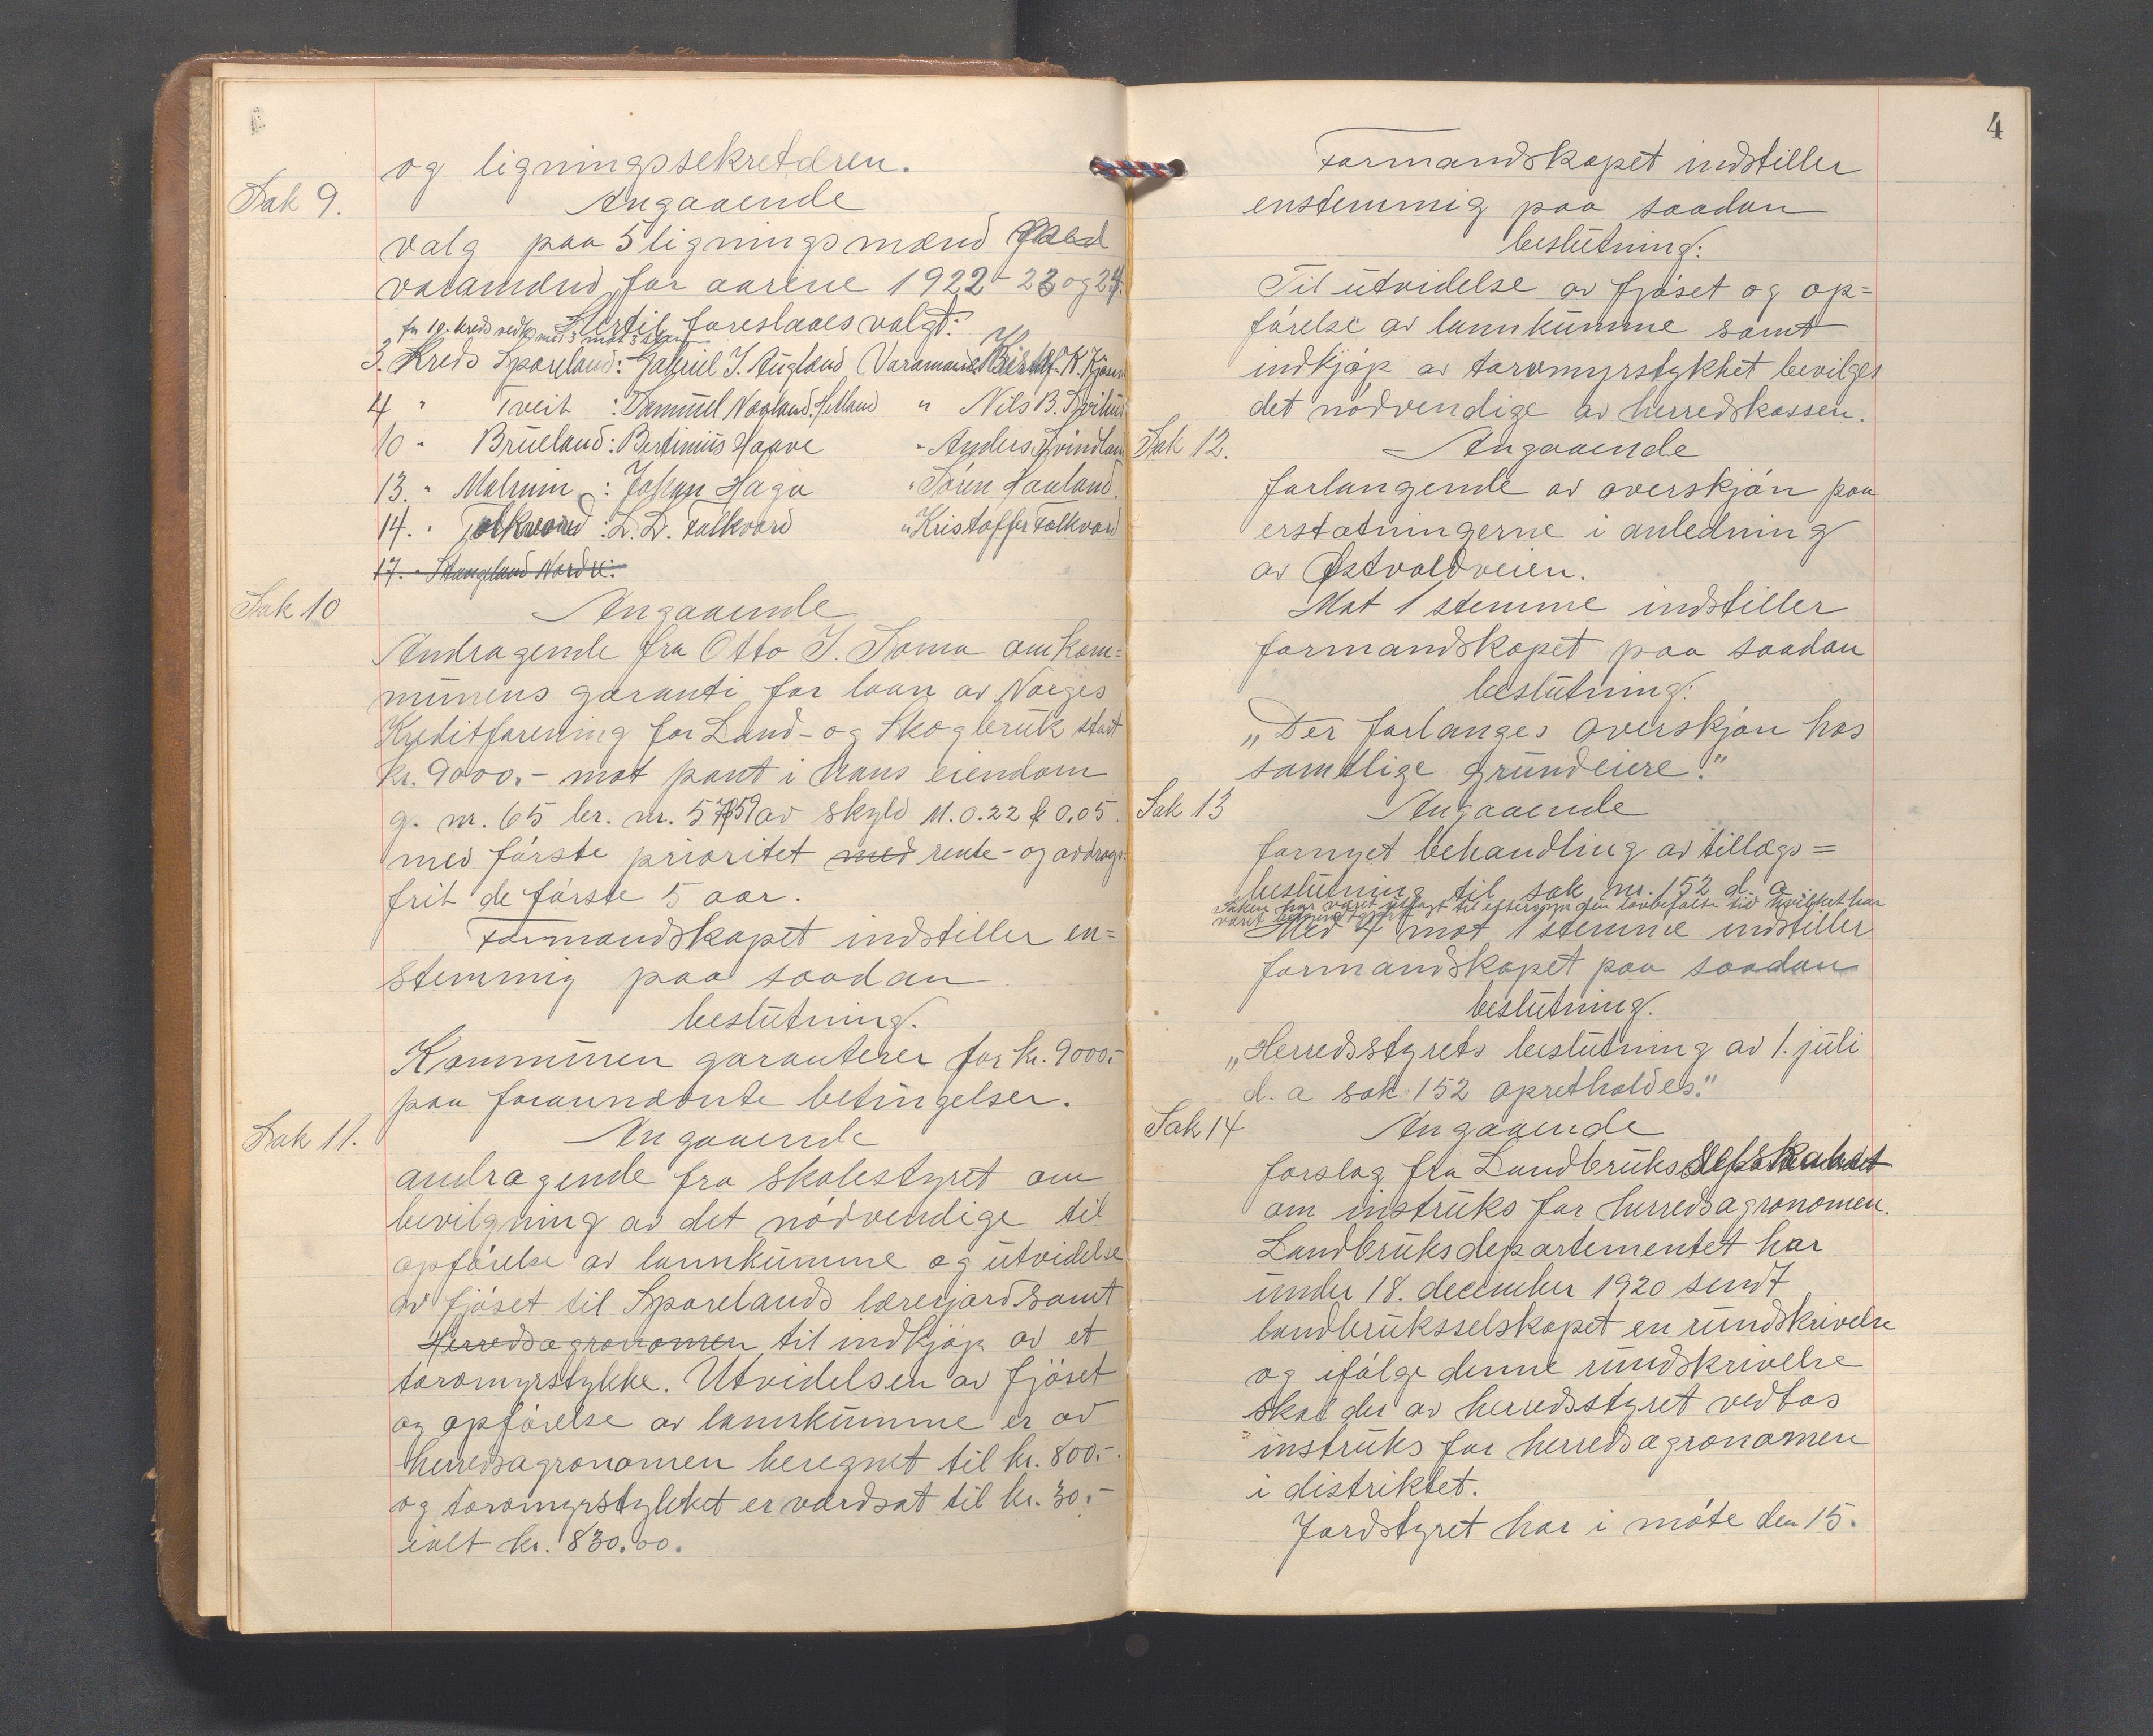 og ligningssekretæren.
Sak 9. Angaaende
valg paa 5 ligningsmænd
varamænd for aarene 1922-23 og 24.
Hertil foreslaaes valgt:
3. Kreds Spareland: Gabriel J. Augland Varamand K. Kjosen
4 " Tveit : Samuel Nagland. Helland " Nils B.
10 " Brueland: Bertinius Haave " Anders Kvindlan
13. " Malmin : Johan Haga " Sören Hauland.
14. " Folkvord : L. L. Folkvord " Kristoffer Folkvord
17. " Stangeland Nordre:
Sak 10 Angaaende
Andragende fra Otto J. Soma om Kom=
munens garanti for laan av Norges
Kreditforening for Land- og Skogbruk stort
kr. 9000.- mot pant i hans eiendom
g. nr. 65 br. nr. av skyld M. 0.22 & 0,05.
med förste prioritet med rente- og avdrags-
frit de förste 5 aar.
Formandskapet indstiller en=
stemmig paa saadan
beslutning.
Kommunen garanterer for kr. 9000.-
paa forannævnte betingelser.
Sak 11. Angaaende
andragende fra skolestyret om
bevilgning av det nödvendige til
opförelse av lannkumme og utvidelse
av fjöset til Sporelands lærerjord samt
Herredsagronomen til indkjöp av et
torvmyrstykke. Utvidelsen av fjöset
og opförelse av lannkumme er av
herredsagronomen beregnet til kr. 800.-
og torvmyrstykket er værdsat til kr. 30.-
ialt kr. 830.00.
4
Formandskapet indstiller
enstemmig paa saadan
beslutning:
Til utvidelse av fjöset og op=
förelse av lannkumme samt
indkjöp av torvmyrstykket bevilges
det nödvendige av herredskassen.
Sak 12. Angaaende
forlangende av overskjön paa
erstatningerne i anledning
av Østvoldveien.
Mot 1 stemme indstiller
formandskapet paa saadan
beslutning:
„Der forlanges overskjön hos
samtlige grundeiere."
Sak 13 Angaaende
fornyet behandling av tillægs=
beslutning til sak nr. 152 d. a.
Saken har været utlagt til eftersyn den lovbefalte tid hvilket har
været
Med 4 mot 1 stemme indstiller
formandskapet paa saadan
beslutning.
„Herredsstyrets beslutning av 1. juli
d. a sak 152 opretholdes."
Sak 14 Angaaende
forslag fra Landbruks
om instruks for herredsagronomen.
Landbruksdepartementet har
under 18. december 1920 sendt
landbruksselskapet en rundskrivelse
og ifölge denne rundskrivelse
skal der av herredsstyret vedtas
instruks for herredsagronomen
i distriktet.
Jordstyret har i möte den 15.